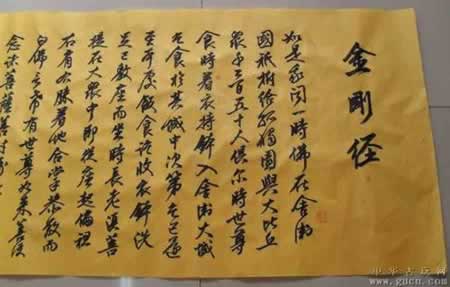 金剛经
如是我聞一時佛在舍衛
國祇树给孤獨園與大比丘
眾千二百五十人俱尔時世尊
食時着衣持鉢入舍衛大城
乞食於其城中次第乞已還
至本處飯食訖收衣鉢洗
足已敷座而坐時長老須菩
提在大眾中即從座起偏袒
右肩右膝著地合掌恭敬而
白佛言希有世尊如来善護
念诸菩薩善付
中华古玩网
www.gucn.com